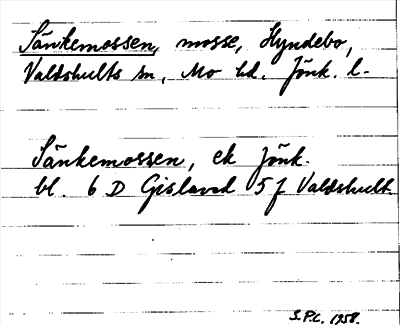 Sänkemossen, mosse, Hyndebo,
Valdshults sn, Mo hd. Jönk. l.
Sänkemossen, ek Jönk.
bl. 6 D Gislaved 5 f Valdshult.
S.P.L. 1958.